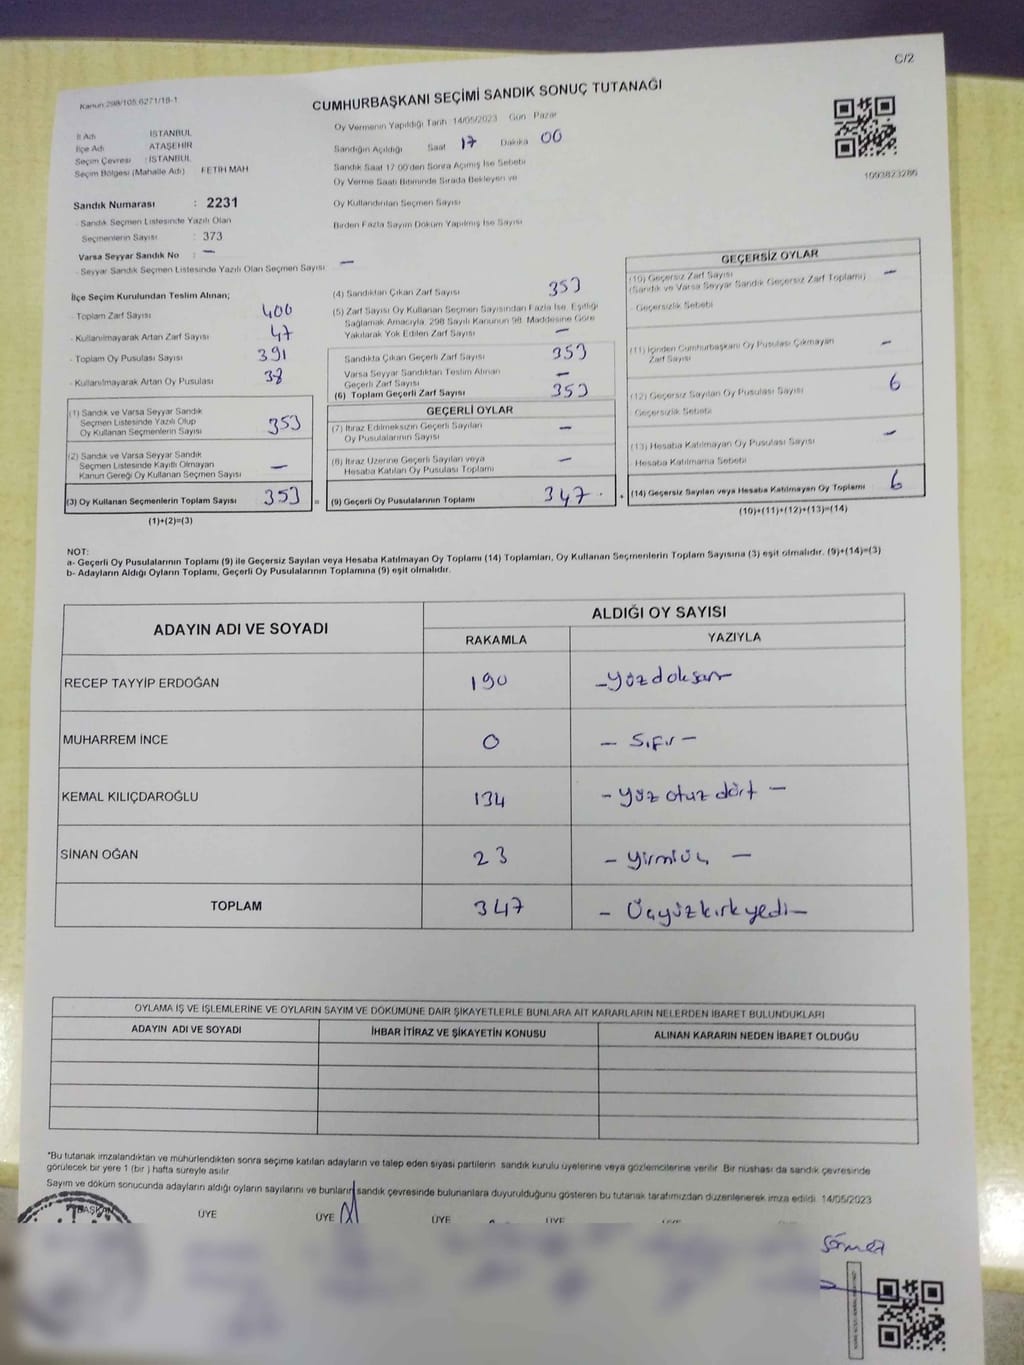 C/2
Kanun 298/105 6271/18-1
CUMHURBAŞKANI SEÇİMİ SANDIK SONUÇ TUTANAĞI
İl Adı : İSTANBUL
İlçe Adı : ATAŞEHİR
Seçim Çevresi : İSTANBUL
Seçim Bölgesi (Mahalle Adı) FETİH MAH
Sandık Numarası : 2231
Sandık Seçmen Listesinde Yazılı Olan
Seçmenlerin Sayısı : 373
Varsa Seyyar Sandık No : —
- Seyyar Sandık Seçmen Listesinde Yazılı Olan Seçmen Sayısı —
Oy Vermenin Yapıldığı Tarih 14/05/2023 Gün Pazar
Sandığın Açıldığı Saat 17 Dakika 00
Sandık Saat 17 00'den Sonra Açımış İse Sebebi
Oy Verme Saati Bitiminde Sırada Bekleyen ve
Oy Kullandırılan Seçmen Sayısı
Birden Fazla Sayım Döküm Yapılmış İse Sayısı
1093823286
İlçe Seçim Kurulundan Teslim Alınan;
- Toplam Zarf Sayısı 400
- Kullanılmayarak Artan Zarf Sayısı 47
- Toplam Oy Pusulası Sayısı 391
- Kullanılmayarak Artan Oy Pusulası 38
(1) Sandık ve Varsa Seyyar Sandık
Seçmen Listesinde Yazılı Olup
Oy Kullanan Seçmenlerin Sayısı 353
(2) Sandık ve Varsa Seyyar Sandık
Seçmen Listesinde Kayıtlı Olmayan
Kanun Gereği Oy Kullanan Seçmen Sayısı —
(3) Oy Kullanan Seçmenlerin Toplam Sayısı 353 =
(1)+(2)=(3)
(4) Sandıktan Çıkan Zarf Sayısı 353
(5) Zarf Sayısı Oy Kullanan Seçmen Sayısından Fazla İse, Eşitliği
Sağlamak Amacıyla, 298 Sayılı Kanunun 98. Maddesine Göre
Yakılarak Yok Edilen Zarf Sayısı —
Sandıkta Çıkan Geçerli Zarf Sayısı 353
Varsa Seyyar Sandıktan Teslim Alınan
Geçerli Zarf Sayısı —
(6) Toplam Geçerli Zarf Sayısı 353
GEÇERLİ OYLAR
(7) İtiraz Edilmeksizin Geçerli Sayılan
Oy Pusulalarının Sayısı —
(8) İtiraz Üzerine Geçerli Sayılan veya
Hesaba Katılan Oy Pusulası Toplamı —
(9) Geçerli Oy Pusulalarının Toplamı 347 +
GEÇERSİZ OYLAR
(10) Geçersiz Zarf Sayısı —
(Sandık ve Varsa Seyyar Sandık Geçersiz Zarf Toplamı)
- Geçersizlik Sebebi
(11) İçinden Cumhurbaşkanı Oy Pusulası Çıkmayan
Zarf Sayısı —
(12) Geçersiz Sayılan Oy Pusulası Sayısı 6
- Geçersizlik Sebebi
(13) Hesaba Katılmayan Oy Pusulası Sayısı —
Hesaba Katılmama Sebebi
(14) Geçersiz Sayılan veya Hesaba Katılmayan Oy Toplamı 6
(10)+(11)+(12)+(13)=(14)
NOT:
a- Geçerli Oy Pusulalarının Toplamı (9) ile Geçersiz Sayılan veya Hesaba Katılmayan Oy Toplamı (14) Toplamları, Oy Kullanan Seçmenlerin Toplam Sayısına (3) eşit olmalıdır. (9)+(14)=(3)
b- Adayların Aldığı Oyların Toplamı, Geçerli Oy Pusulalarının Toplamına (9) eşit olmalıdır.
ADAYIN ADI VE SOYADI
ALDIĞI OY SAYISI
RAKAMLA YAZIYLA
RECEP TAYYİP ERDOĞAN 190 -yüzdoksan-
MUHARREM İNCE 0 - Sıfır -
KEMAL KILIÇDAROĞLU 134 - yüz otuz dört -
SİNAN OĞAN 23 - yirmiüç -
TOPLAM 347 - Üçyüzkırkyedi-
OYLAMA İŞ VE İŞLEMLERİNE VE OYLARIN SAYIM VE DÖKÜMÜNE DAİR ŞİKAYETLERLE BUNLARA AİT KARARLARIN NELERDEN İBARET BULUNDUKLARI
ADAYIN ADI VE SOYADI İHBAR İTİRAZ VE ŞİKAYETİN KONUSU ALINAN KARARIN NEDEN İBARET OLDUĞU
*Bu tutanak imzalandıktan ve mühürlendikten sonra seçime katılan adayların ve talep eden siyasi partilerin sandık kurulu üyelerine veya gözlemcilerine verilir. Bir nüshası da sandık çevresinde
görülecek bir yere 1 (bir ) hafta süreyle asılır
Sayım ve döküm sonucunda adayların aldığı oyların sayılarını ve bunların sandık çevresinde bulunanlara duyurulduğunu gösteren bu tutanak tarafımızdan düzenlenerek imza edildi. 14/05/2023
BAŞKAN ÜYE ÜYE ÜYE ÜYE